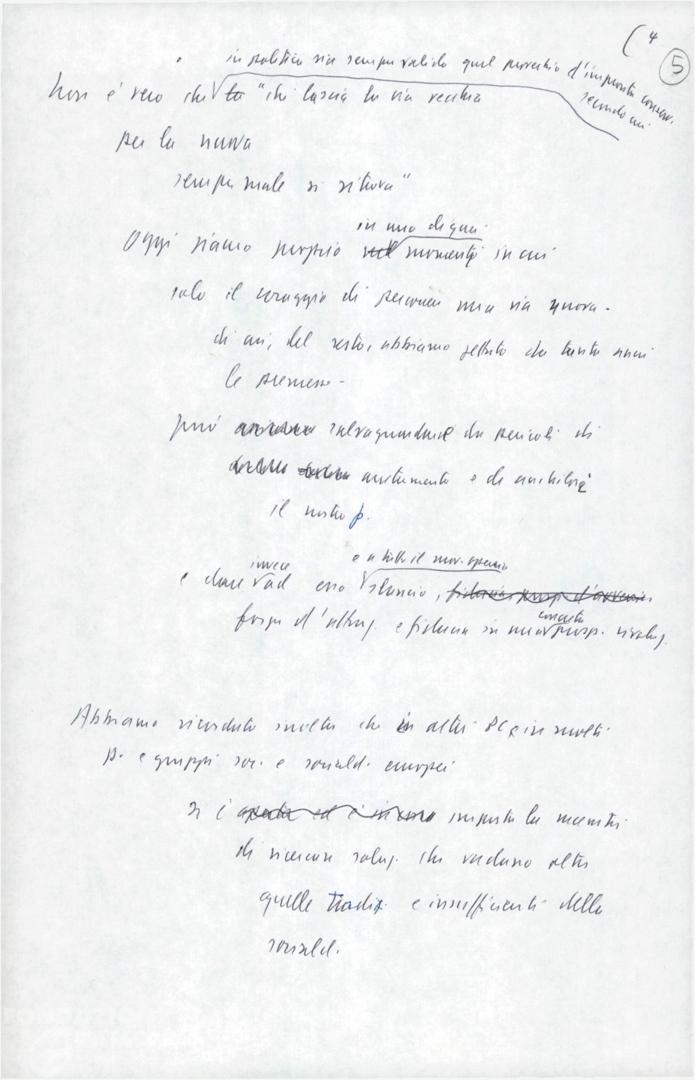 ( 4
5
in politica sia sempre valido quel proverbio d'impronta conserv.
secondo cui
Non è vero che "chi lascia la via vecchia
per la nuova
sempre male si ritrova"
in uno di quei
Oggi siamo proprio momenti in cui
solo il coraggio di percorrere una via nuova -
di cui, del resto, abbiamo gettato da tanti anni
le premesse -
può salvaguardare da pericoli di
arretramento e di
il nostro p.
invece e a tutto il mov. operaio
e dare ad esso slancio,
concreta
forza d'attraz. e fiducia in una prosp. rivoluz.
Abbiamo ricordato inoltre che in altri PC e in molti
p. e gruppi soc. e sociald. europei
si è imposta la necessità
di ricercare soluz. che vadano oltre
quelle tradiz. e insufficienti della
sociald.